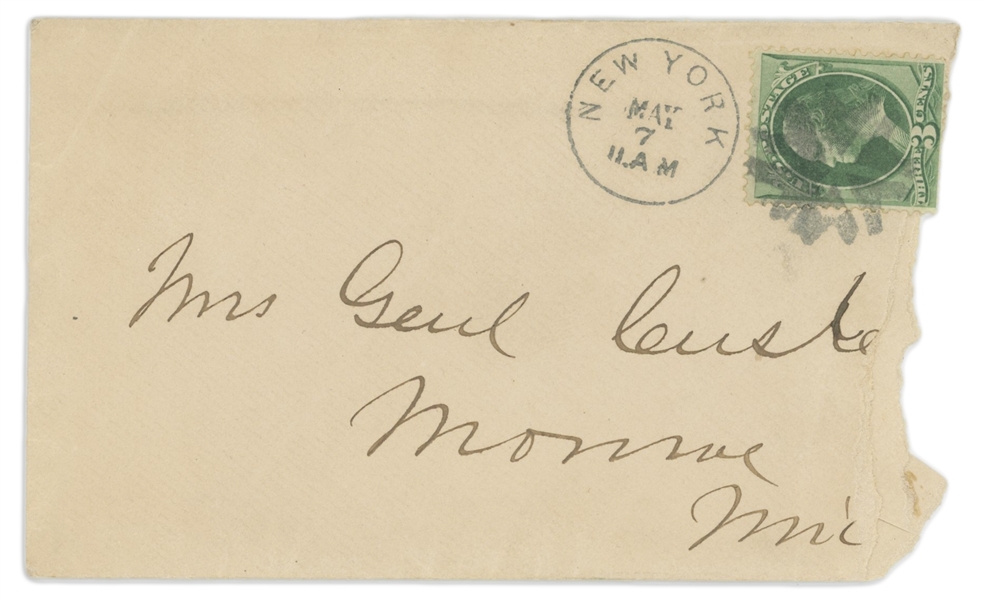 NEW YORK
MAY
7
11.AM
POSTAGE
3
Mrs Genl Custe
Monroe
Mic